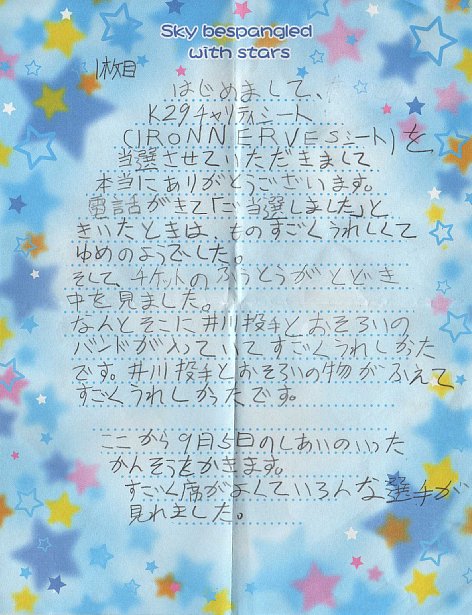 Sky bespangled
with stars
1枚目
はじめまして、
K29チャリティシート
(IRONNERVESシート)を、
当選させていただきまして
本当にありがとうございます。
電話がきて「ご当選しました」と
きいたときは、ものすごくうれしくて
ゆめのようでした。
そして、チケットのふうとうがとどき
中を見ました。
なんとそこに井川投手とおそろいの
バンドが入っていてすごくうれしかった
です。井川投手とおそろいの物がふえて
すごくうれしかったです。
ここから9月5日のしあいのいった
かんそうをかきます。
すごく席がよくていろんな選手が
見れました。